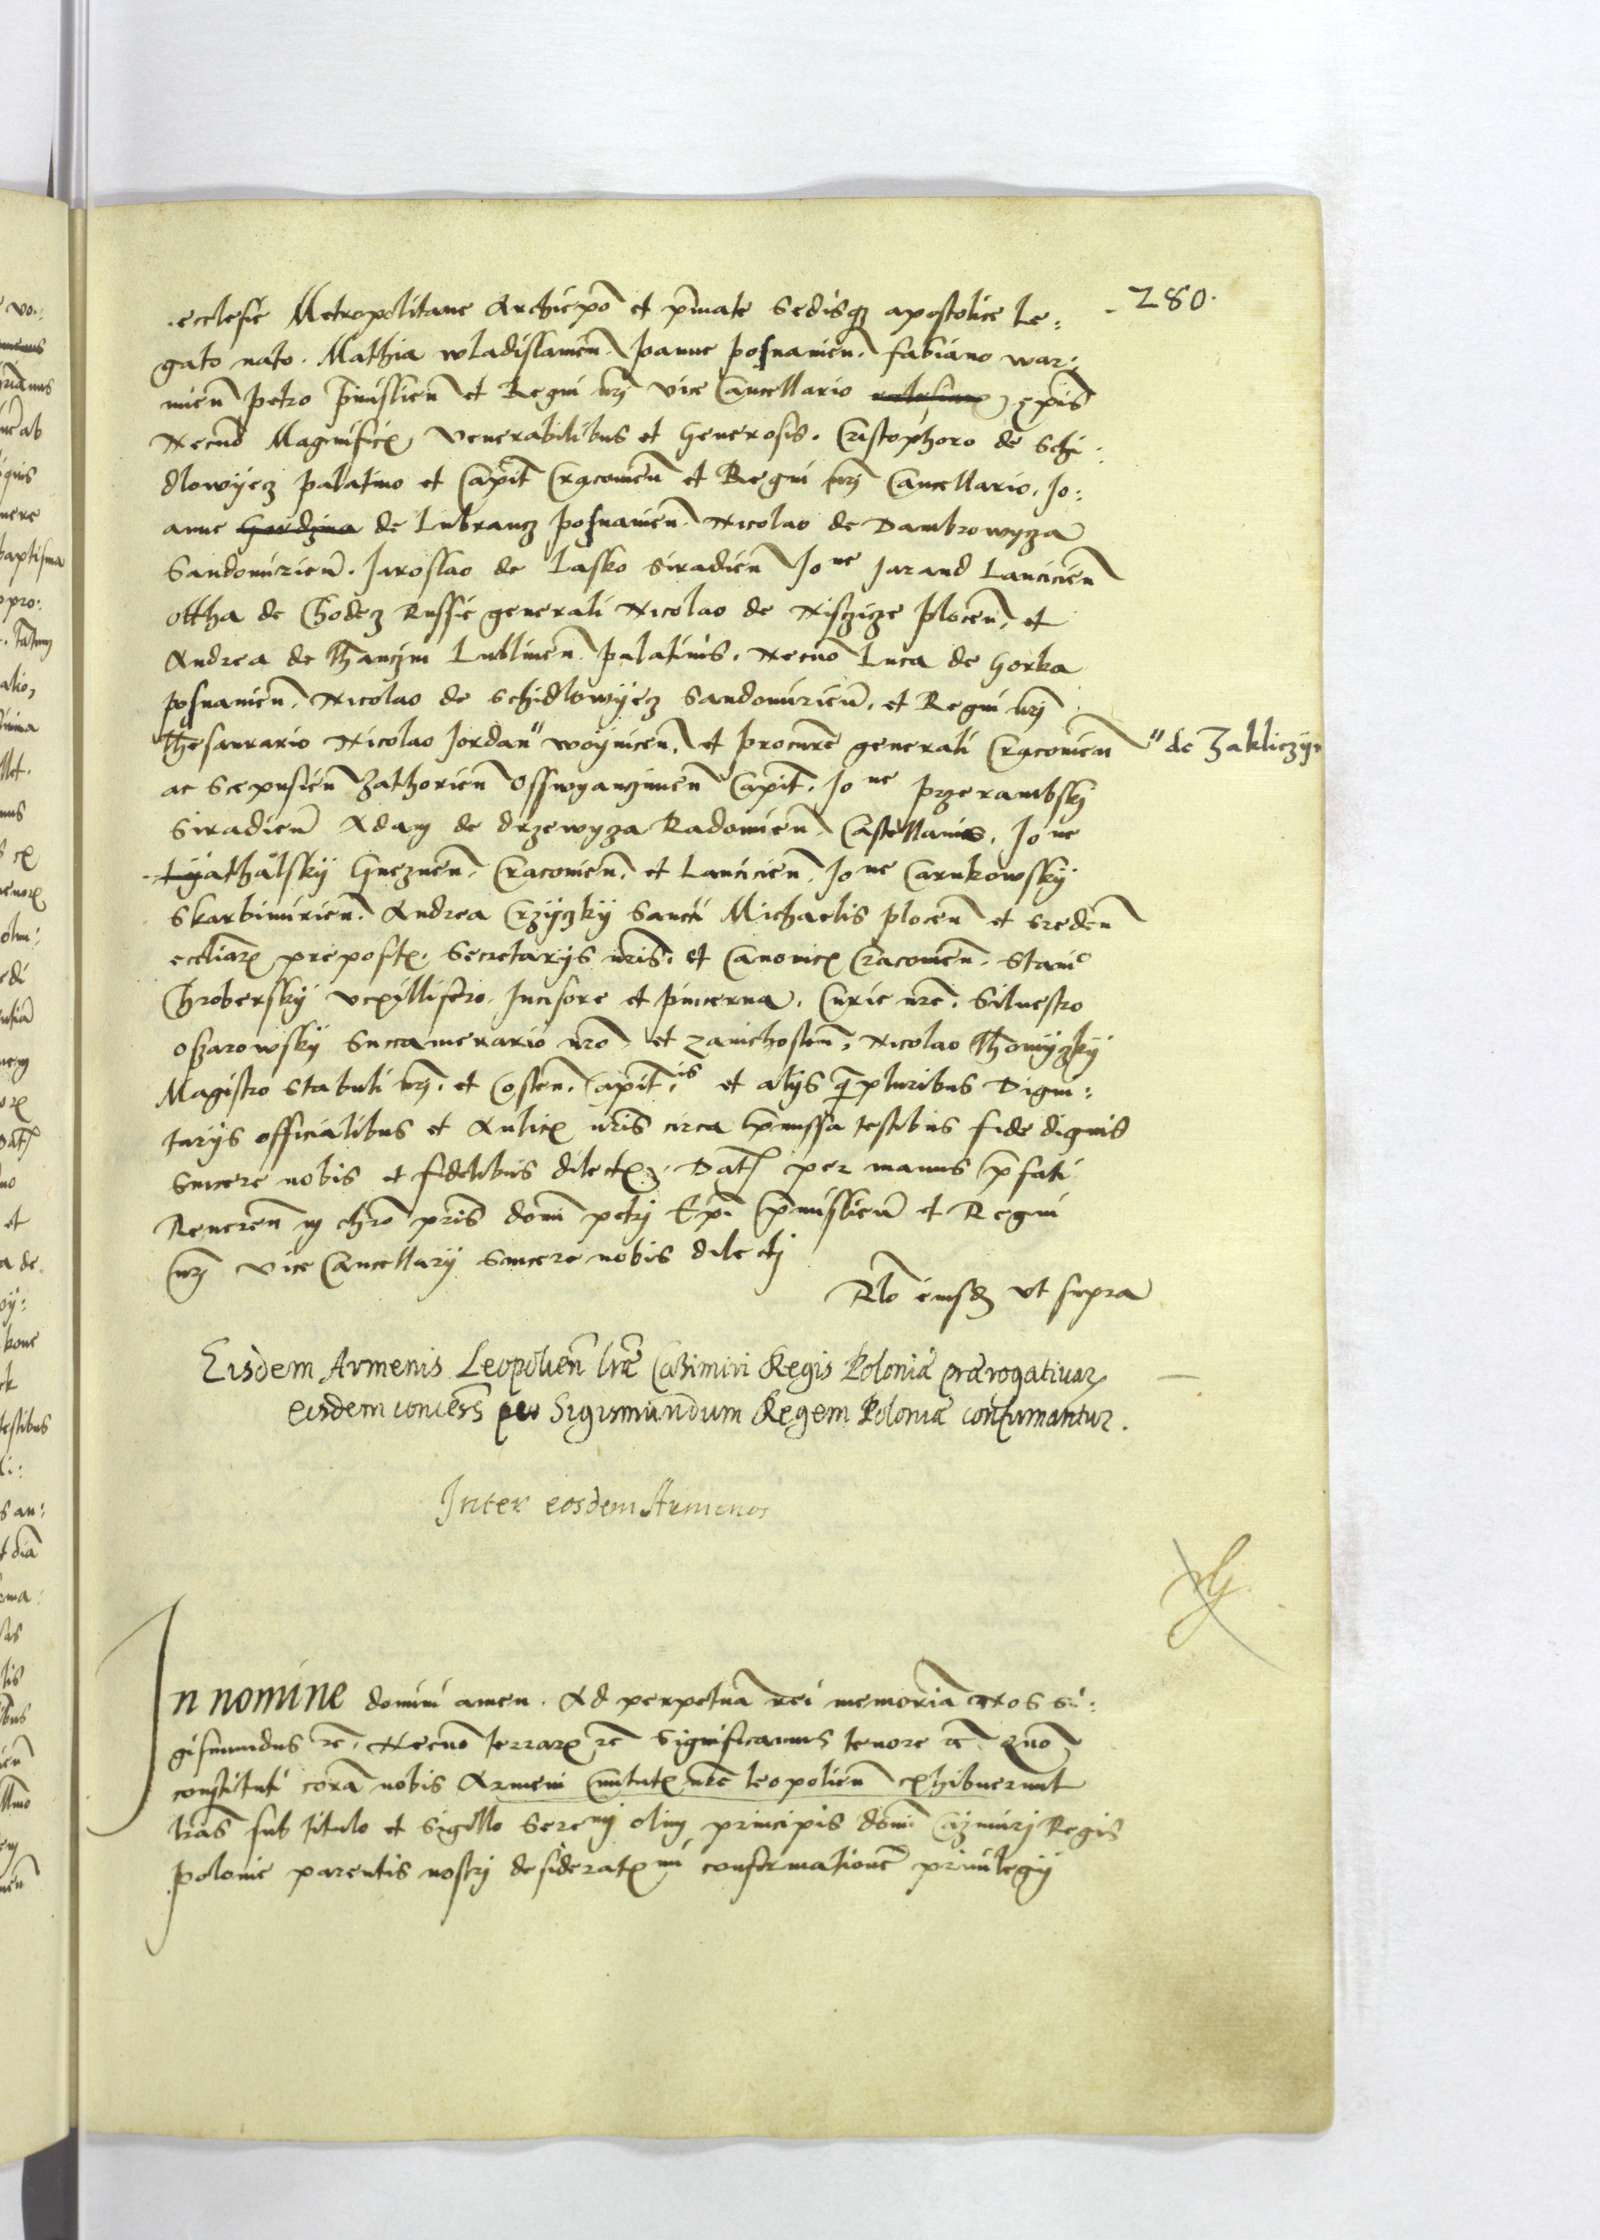 280.
ecclesie Metropolitane Archiepo et pmate Sedisq apostolice Le:
gato nato. Mathia wladislauien. Joanne posnanien. fabiano war:
mien petro pmislien et Regni nri vice Cancellario epis
Necno Magnificis, venerabilibus et Generosis. Cristophoro de Schi:
dlowyecz palatino et Capit Cracouien et Regni nri Cancellario. Jo:
anne Gardzina de Lubrancz posnanien. Nicolao de Dambrowyza
Sandomirien. Jaroslao de Lasko Siradien Jo ne Jarand Lancicien
ottha de Chodecz Russie generali Nicolao de Nisczicze plocen. et
Andrea de Thanczin Lublinen palatinis. Necno Luca de Gorka
posnanien. Nicolao de Schidlowyecz Sandomirien. et Regni nri
Thesaurario Nicolao Jordan" woynicen. et procure generali Cracouien " de Zakliczyn
ac Scepusien Zathorien Osswyanczimen Capit. Jo ne przerambsky
Siradien Adam de drzewyza Radomien. Castellanis. Jo ne
Lyathalsky Gneznen. Cracouien. et Lancicien. Jo ne Carnkowsky
Skarbimirien. Andrea Crzyczky Sancti Michaelis plocen et sreden
eccliarz prepositis. Secretarijs nris. et Canonicis Cracouien. Stani
Chrobersky vexillifero. Incisore et pincerna. Curie nre. Siluestro
ozarowsky Succamerario nro. et Zawichosten. Nicolao Thomyczky
Magistro Stabuli nri. et Costen. Capit. is et alijs qpluribus Digni:
tarijs officialibus et Aulicis nris circa pmissa testibus fide dignis
Sincere nobis et fidelibus dilectis. Dat per manus pfati
Reueren in chro pris domi petri Epi pmislien et Regni
nri vice Cancellarij Sincere nobis dilecti
Rlo eiusd vt supra
Eisdem Armenis Leopolien lrae Casimiri Regis Poloniae praerogativarz
eisdem concess per Sigismundum Regem Poloniae confirmantur.
Inter eosdem Armenos
In nomine domini amen. Ad perpetua rei memoria Nos Si:
gismundus rc. Necno terrarz rc Significamus tenore rc Quo
constituti cora nobis Armeni Ciuitatis nre leopolien exhibuerunt
lras sub titulo et Sigillo Sere mi olim principis domi Cazmirj Regis
polonie parentis nostri desideratis mi confirmatione priuilegij